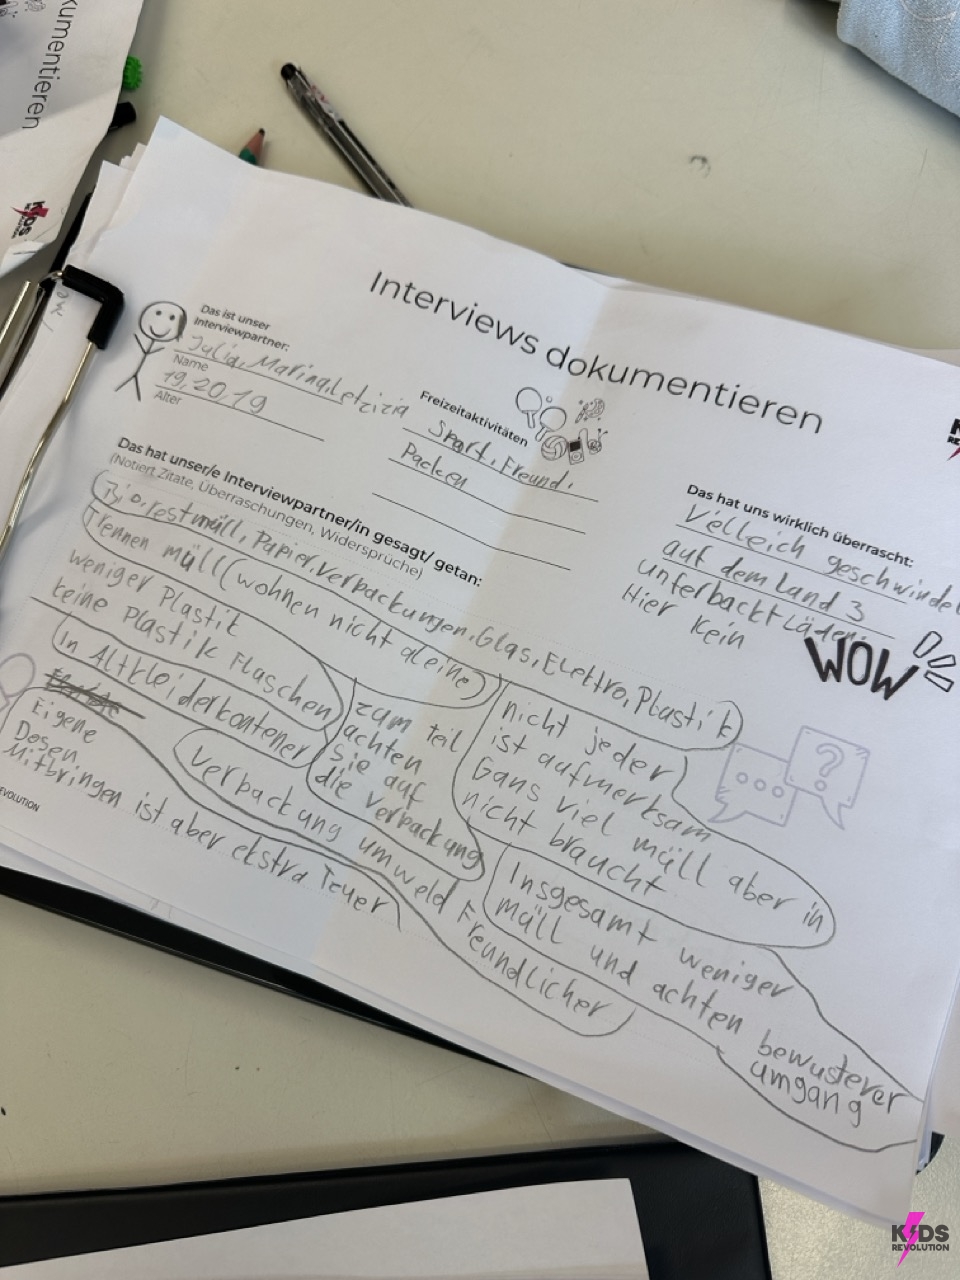 kumentieren
KIDS
REVOLUTION
Interviews dokumentieren
Das ist unser
Interviewpartner:
Julia, Marina, Letizia
Name
19, 20, 19
Alter
Freizeitaktivitäten
Sport, Freund,
Packen
Das hat unser/e Interviewpartner/in gesagt/ getan:
(Notiert Zitate, Überraschungen, Widersprüche)
Das hat uns wirklich überrascht:
Velleich geschwindel
auf dem Land 3
unferbackt Läden.
Hier kein
WOW
Bio, restmüll, Papier, verpackungen, Glas, Elektro, Plastik
Trennen müll (wohnen nicht aleine)
weniger Plastik
keine Plastik Flaschen
In Altkleiderkontener
zum teil
achten
sie auf
die verpackung
nicht jeder
ist aufmerksam
Gans viel müll aber in
nicht braucht
Verbackung umweld Freundlicher
Insgesamt weniger
müll und achten bewusterer
umgang
Eigene
Dosen
Mitbringen ist aber ekstra Teuer
EVOLUTION
KIDS
REVOLUTION